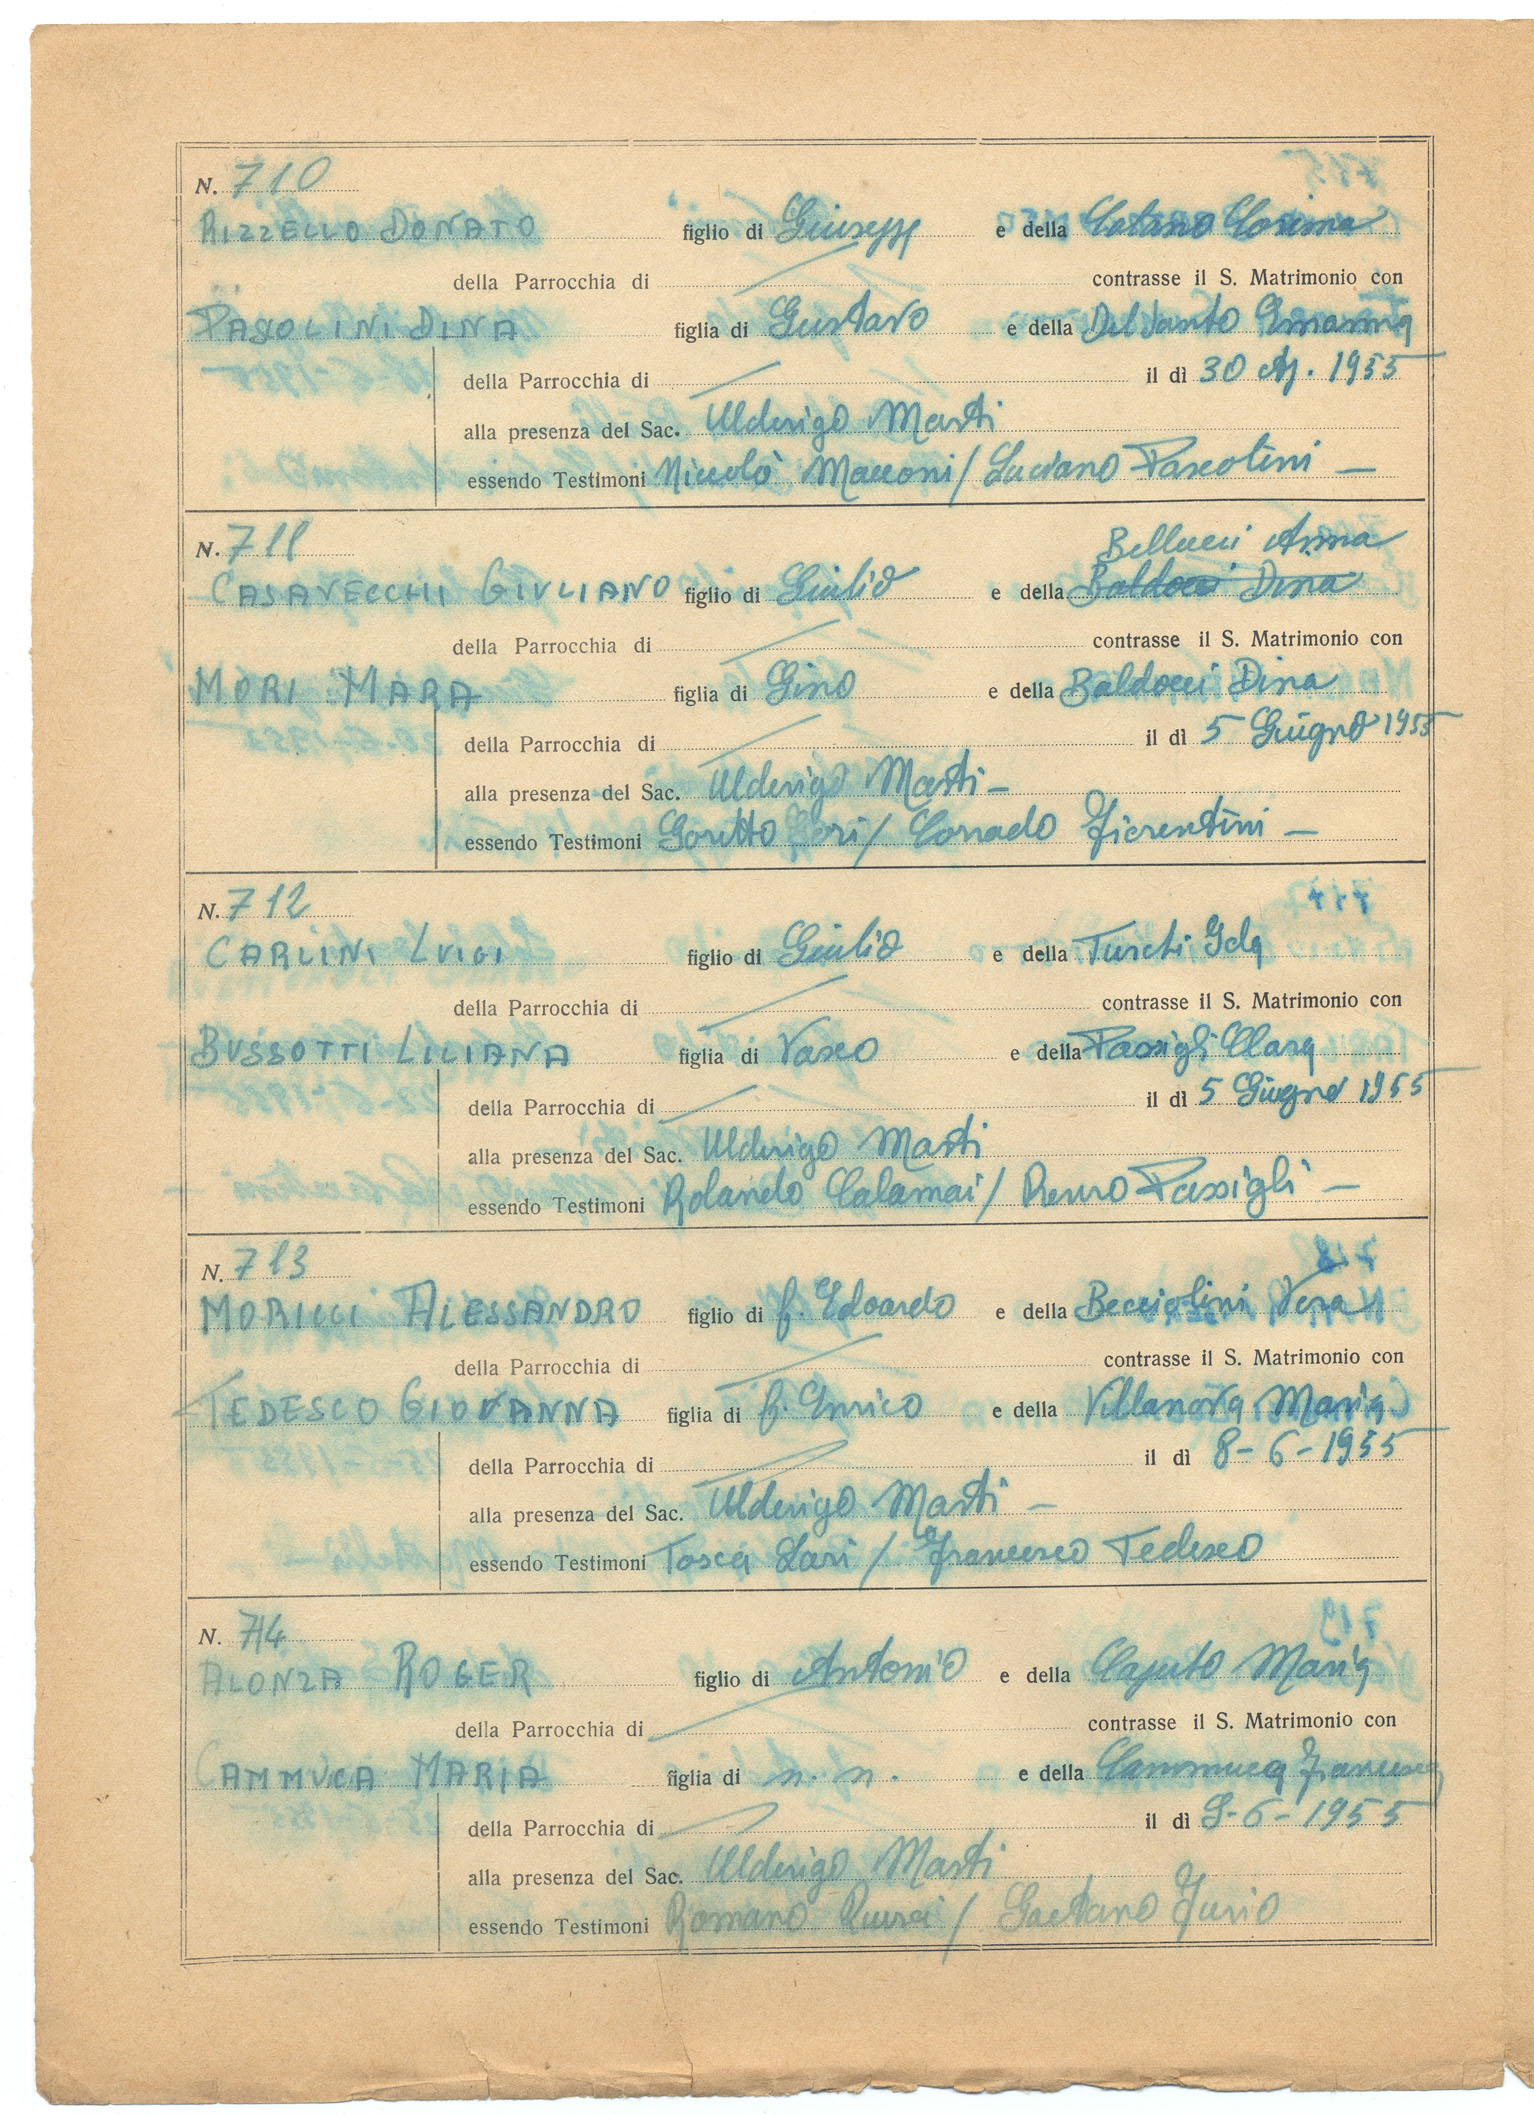 N. 710
RIZZELLO DONATO figlio di Giusepp e della Catano Cosima
della Parrocchia di contrasse il S. Matrimonio con
PASQLINI DINA figlia di Gustavo e della Del Santo
della Parrocchia di il dì 30 Ap. 1955
alla presenza del Sac. Ulderigo Masti
essendo Testimoni Niccolò Macconi / Luciano Pascolini —
N. 711
Bellucci Anna
CASAVECCHI GIULIANO figlio di Giulio e della Baldocci Dina
della Parrocchia di contrasse il S. Matrimonio con
MORI MARA figlia di Gino e della Baldocci Dina
della Parrocchia di il dì 5 Giugno 1955
alla presenza del Sac. Ulderigo Masti —
essendo Testimoni Goretto Geri / Corrado Fiorentini —
N. 712
CARLINI LUIGI figlio di Giulio e della Turchi Ida
della Parrocchia di contrasse il S. Matrimonio con
BUSSOTTI LILIANA figlia di Vasco e della Passigli Clara
della Parrocchia di il dì 5 Giugno 1955
alla presenza del Sac. Ulderigo Masti
essendo Testimoni Rolando Calamai / Renzo Passigli —
N. 713
MORICCI ALESSANDRO figlio di f. Edoardo e della Becciolini Vera
della Parrocchia di contrasse il S. Matrimonio con
TEDESCO GIOVANNA figlia di f. Enrico e della Villanova Maria
della Parrocchia di il dì 8-6-1955
alla presenza del Sac. Ulderigo Masti —
essendo Testimoni Tosca Lari / Francesco Tedesco
N. 714
ALONZA ROGER figlio di Antonio e della Caputo Maria
della Parrocchia di contrasse il S. Matrimonio con
CAMMUCA MARIA figlia di n. n. e della Cammuca Francesca
della Parrocchia di il dì 9-6-1955
alla presenza del Sac. Ulderigo Masti
essendo Testimoni Romano / Gaetano Furio